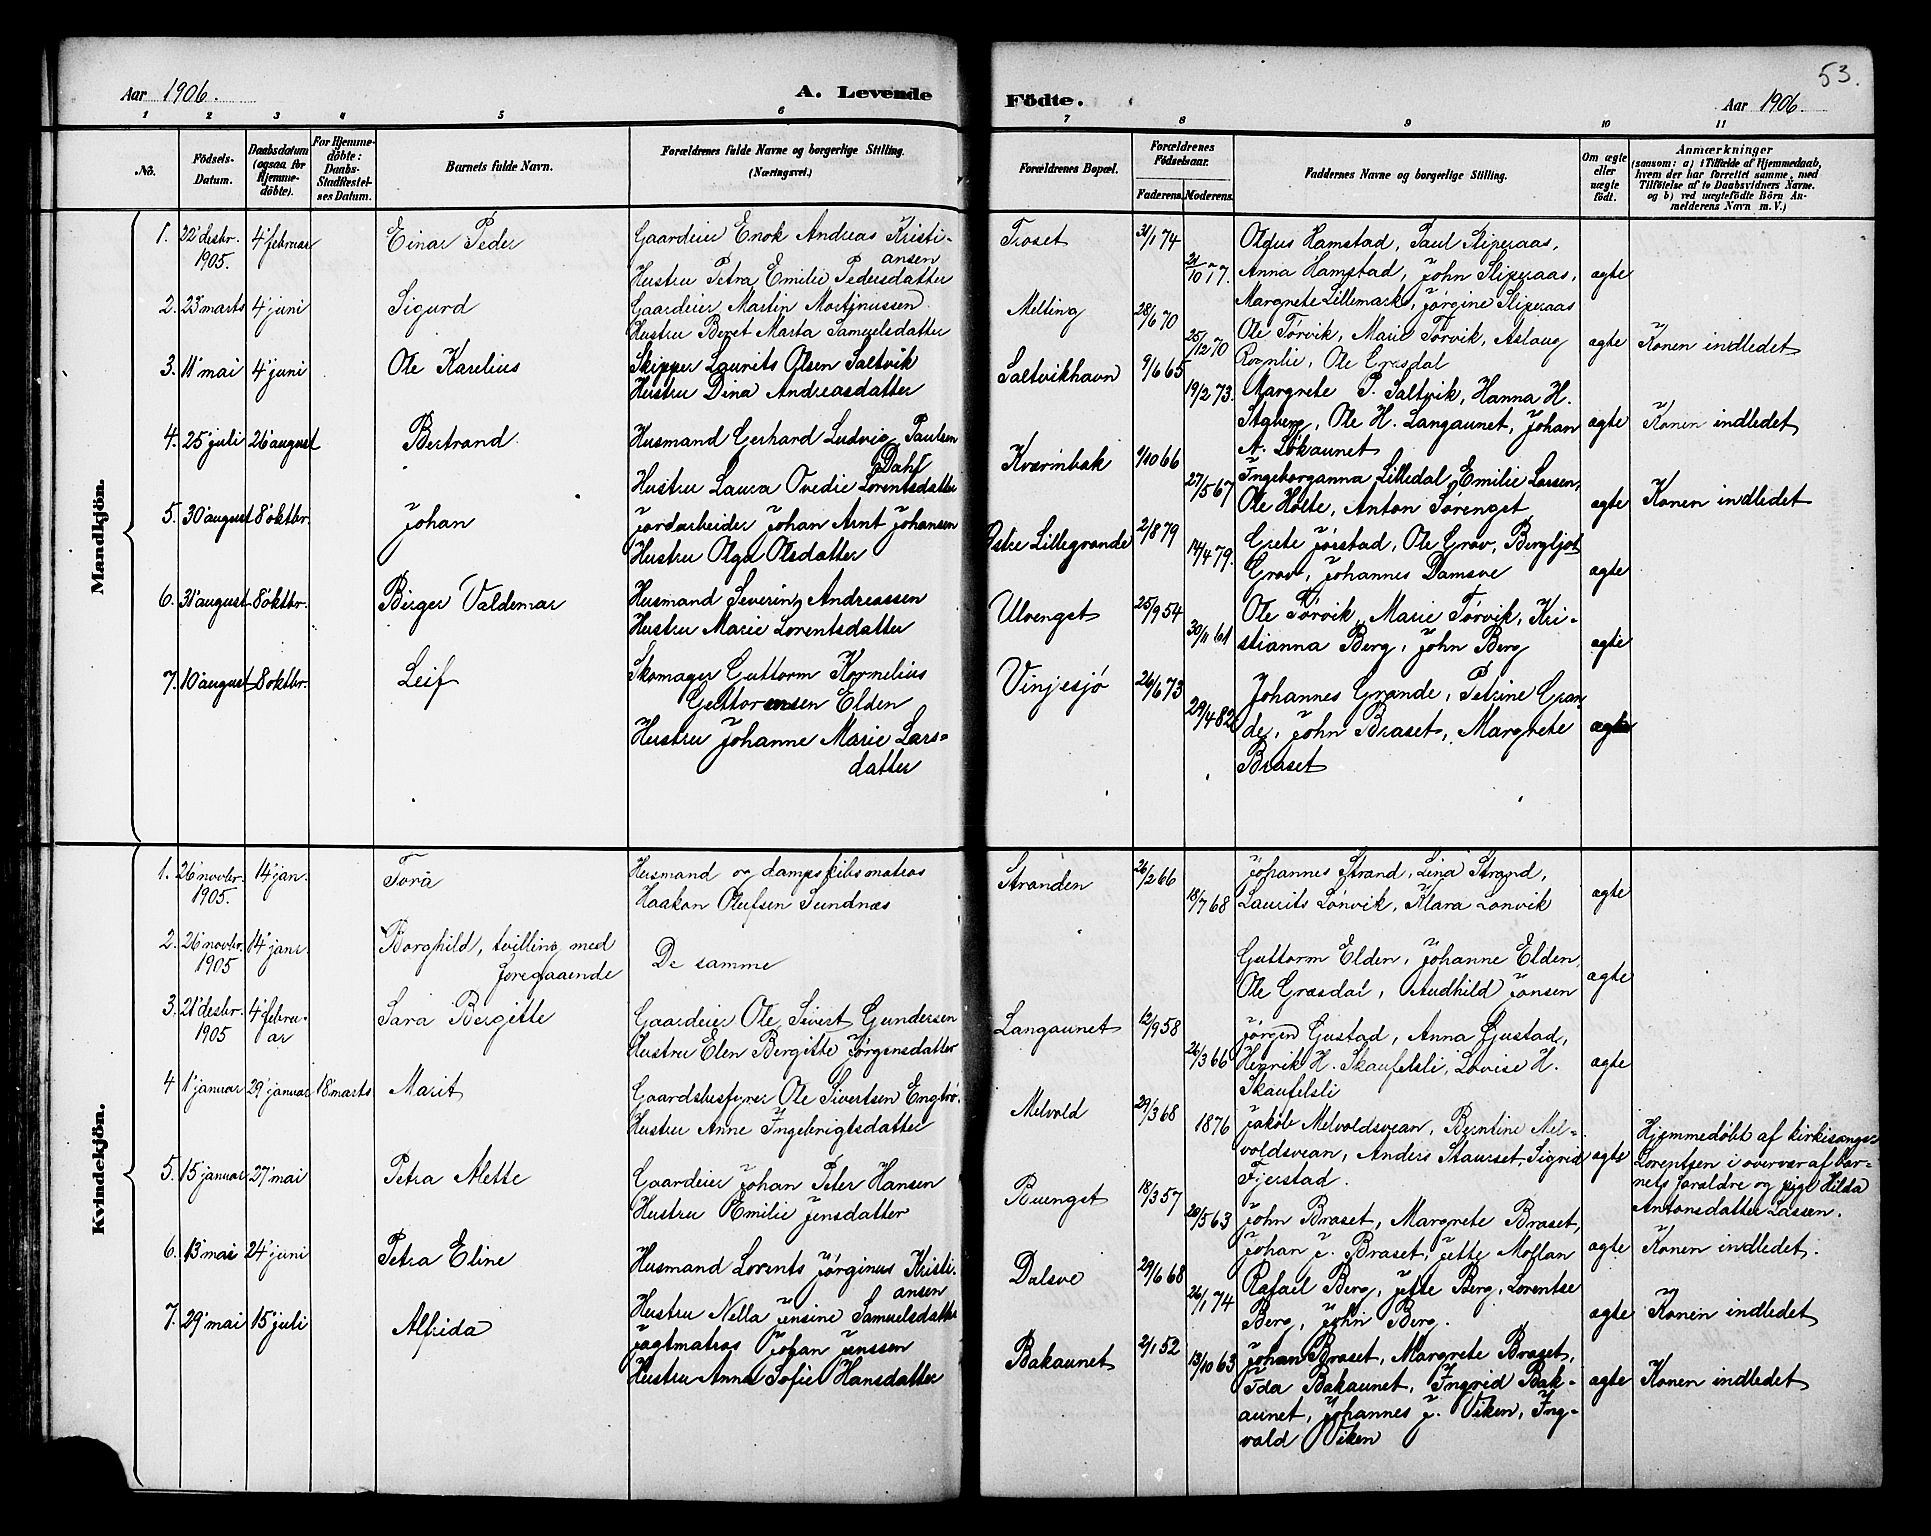 53.
Aar 1906.
A. Levende
Födte.
Aar 1906.
1 2 3 4 5 6 7 8 9 10 11
No.
Födsels-
Datum.
Daabsdatum
(ogsaa for
Hjemme-
döbte).
For Hjemme-
döbte:
Daabs-
Stadfæstel-
ses Datum.
Barnets fulde Navn.
Forældrenes fulde Navne og borgerlige Stilling.
(Næringsvei.)
Forældrenes Bopæl.
Forældrenes
Födselsaar.
Faderens. Moderens.
Faddernes Navne og borgerlige Stilling.
Om ægte
eller
uægte
födt.
Anmærkninger
(saasom: a) i Tilfælde af Hjemmedaab,
hvem der har forrettet samme, med
Tilföielse af to Daabsvidners Navne.
og b) ved uægtefödte Börn An-
melderens Navn m. V.)
Mandkjön.
1. 22' desbr. 1905. 4' februar Einar Peder
Gaardeier Enok Andreas Kristi-
ansen
Hustru Petra Emilie Pedersdatter
Troset 31/1 74 21/10 77.
Oldus Hamstad, Paul Sliperaas,
Anna Hamstad, John Sliperaas,
Margrete Lillemark, Jørgine Sliperaas
ægte
2. 23' marts 4' juni Sigurd
Gaardeier Martin Mortinussen
Hustru Beret Marta Samuelsdatter
Melting 28/6 70 25/12 70
Ole Tørvik, Marie Tørvik, Aslaug
Romlie, Ole Græsdal
ægte Konen indledet
3. 11' mai 4' juni Ole Karelius
Skipper Laurits Olsen Saltvik
Hustru Dina Andreasdatter
Saltvikhavn 9/6 65 19/2 73.
Margrete P. Saltvik, Hanna H.
Staberg, Ole H. Langaunet, Johan
A. Løkaunet
ægte Konen indledet
4. 25' juli 26' august Bertrand
Husmand Gerhard Ludvig Paulsen
Dahl
Hustru Laura Ovedie Lorentsdatter
Kværnbak 1/10 66 27/5 67
Ingeborganna Lilledal, Emilie Larsen,
Ole Holte, Anton Sørenget
ægte Konen indledet
5. 30' august 8' oktbr. Johan
Jordarbeider Johan Arnt Johansen
Hustru Olga Olsdatter
Østre Lillegrande 2/8 79 14/4 79.
Grete Jørstad, Ole Grav, Bergljot
Grav, Johannes Damsve
ægte
6. 31' august 8' oktbr. Birger Valdemar
Husmand Severin Andreassen
Hustru Marie Lorentsdatter
Ulvenget 25/9 54 30/11 61
Ole Tørvik, Marie Tørvik, Kri-
stianna Berg, John Berg
ægte
7. 10' august 8' oktbr. Leif
Skomager Guttorm Kornelius
Guttormsen Elden
Hustru Johanne Marie Lars-
datter
Vinjesjø 26/6 73 29/4 82
Johannes Grande, Petrine Gran-
de, John Braset, Margrete
Braset
ægte
Kvindekjön.
1. 26' novbr. 1905. 14' jan. Tora
Husmand og dampskibsmatros
Haakon Olufsen Sundnæs
Stranden 26/2 66 18/7 68
Johannes Strand, Lina Strand,
Laurits Lønvik, Klara Lønvik
ægte
2. 26' novbr. 1905 14' janr Borghild, tvilling med
foregaaende
De samme
Guttorm Elden, Johanne Elden,
Ole Græsdal, Audhild Jensen
ægte
3. 21' desbr. 1905 4' febru-
ar
Sara Bergitte
Gaardeier Ole Sivert Gundersen
Hustru Elen Bergitte Jørgensdatter
Langaunet 12/9 58 26/3 66
Jørgen Gustad, Anna Gustad,
Henrik H. Skaufelsli, Lovise H.
Skaufelsli
ægte
4 1' januar 29' januar 18' marts Marit
Gaardsbestyrer Ole Sivertsen Engbrø.
Hustru Anne Ingebrigtsdatter
Melvold 29/3 68 1876
Jakob Melvoldsvean, Berntine Mel-
voldsvean, Anders Staurset, Sigrid
Fjerstad.
ægte
Hjemmedøbt af kirkesanger
Lorentsen i overvær af bar-
nets forældre og pige Hilda
Antonsdatter Lassen.
5. 15' januar 27' mai Petra Alette
Gaardeier Johan Peter Hansen
Hustru Emilie Jensdatter
Ruenget 18/3 57 20/5 63
John Braset, Margrete Braset,
Johan J. Braset, Jette Moflan
ægte Konen indledet.
6. 13' mai 24' juni Petra Eline
Husmand Lorents Jørginus Kristi-
ansen
Hustru Nella Jensine Samuelsdatter
Dalsve 29/6 68 26/1 74
Rafael Berg, Jette Berg, Lorentse
Berg, John Berg.
ægte Konen indledet
7. 29' mai 15' juli Alfrida
Jagtmatros Johan Jenssen
Hustru Anna Sofie Hansdatter
Bakaunet 21/1 52 13/10 63
Johan Braset, Margrete Braset,
Ida Bakaunet, Ingrid Bak-
aunet, Johannes J. Viken, Ing-
vald Viken
ægte Konen indledet